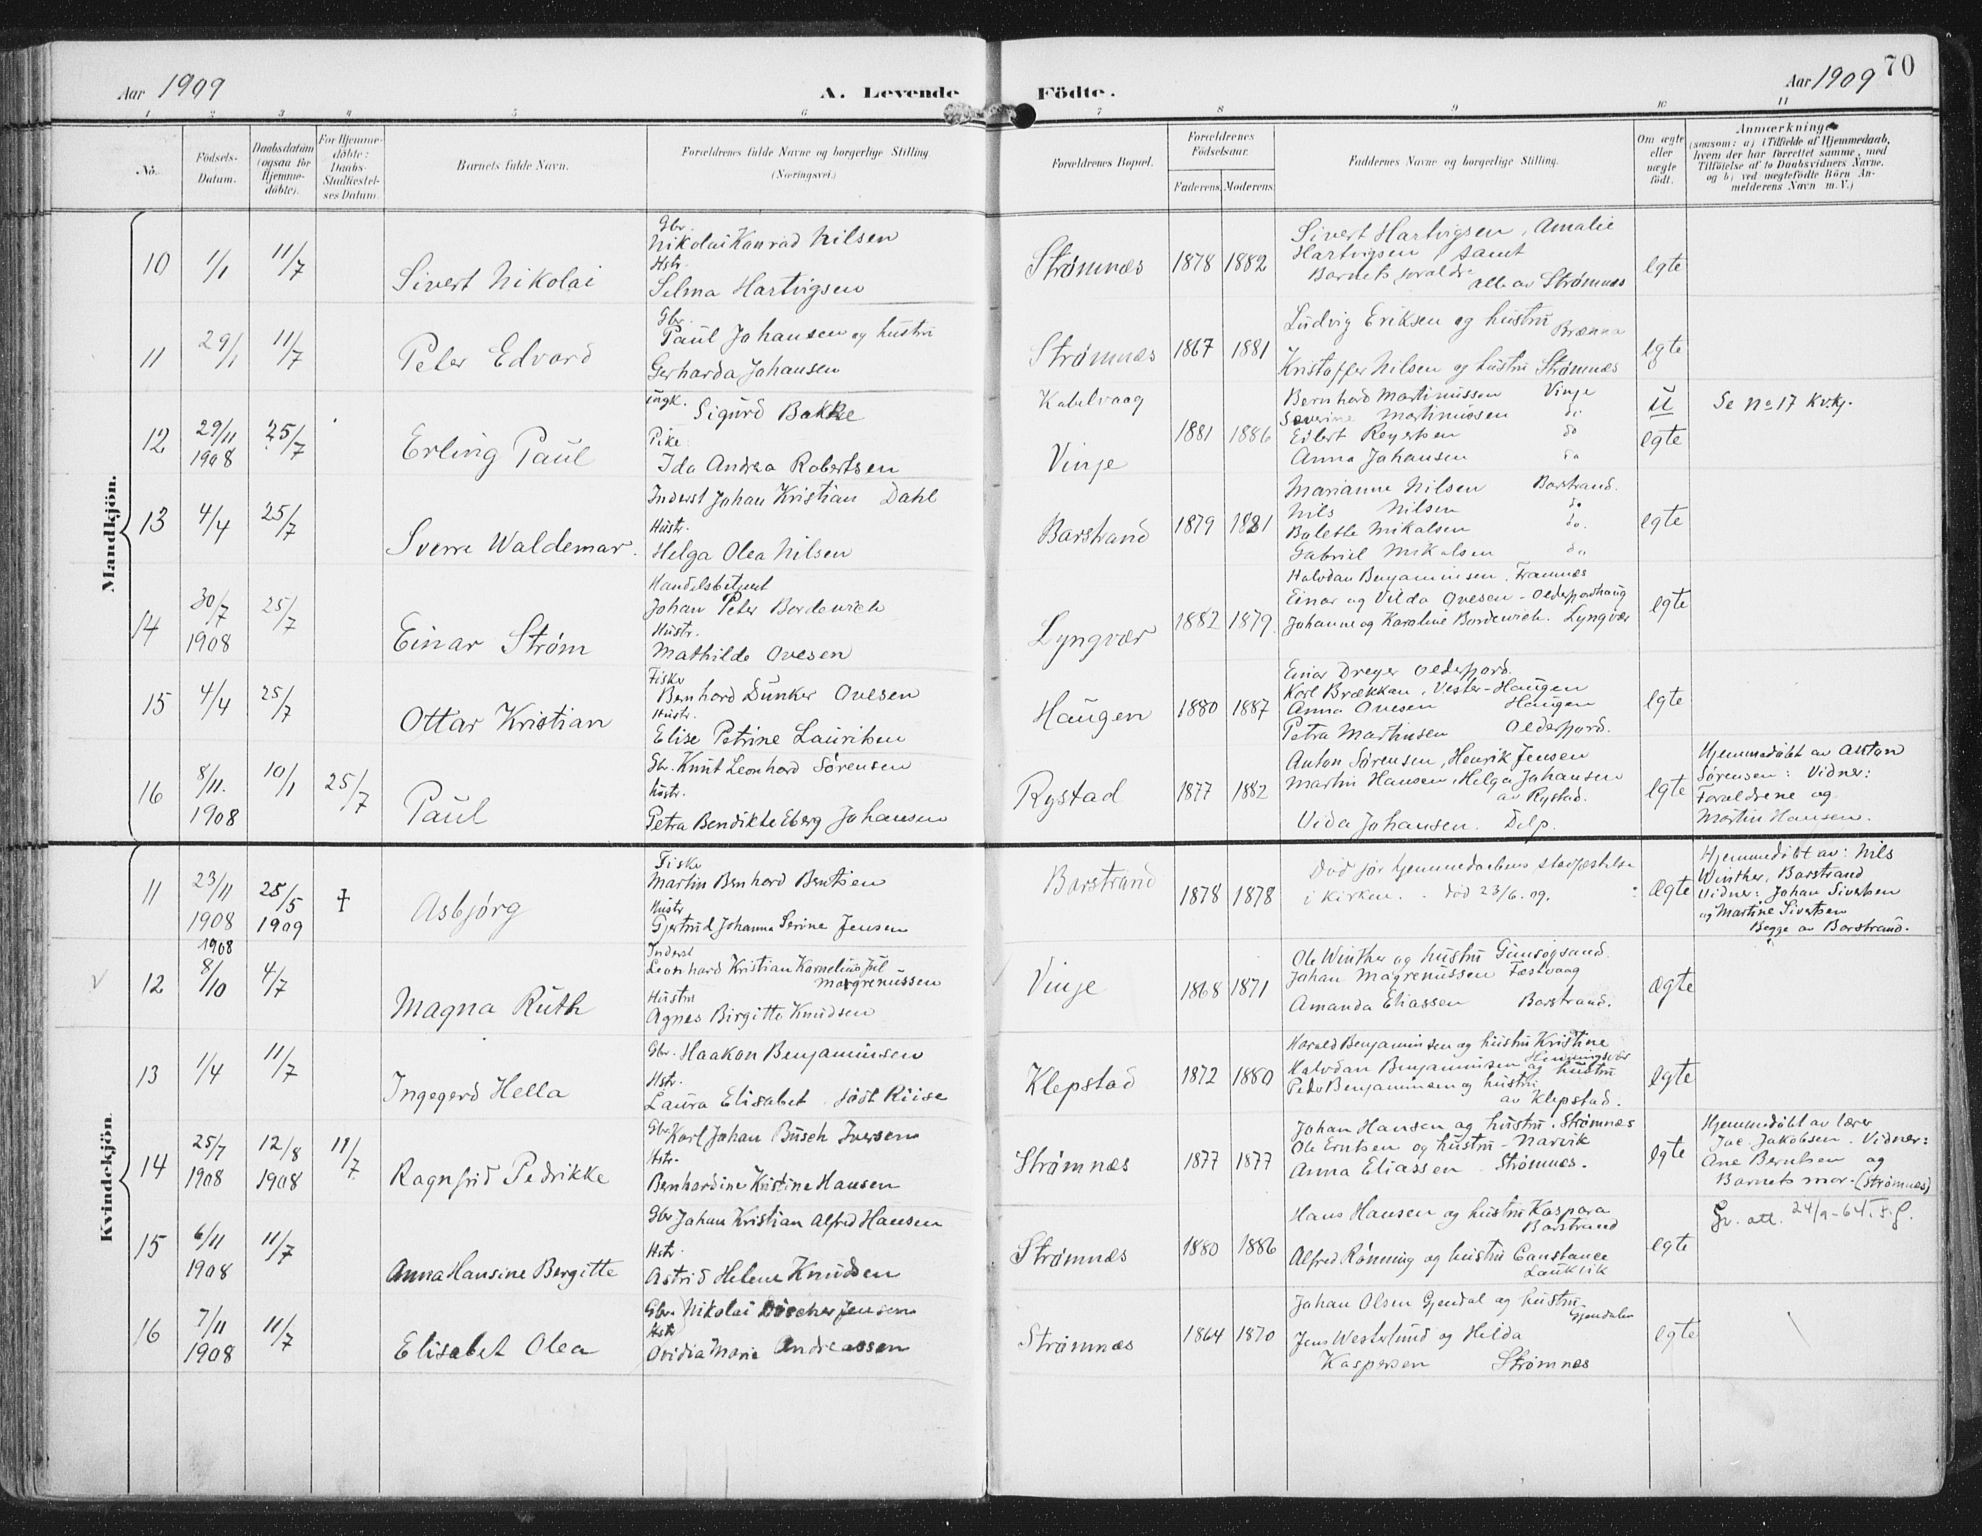 Aar 1909
A. Levende Födte.
Aar 1909
70
1 2 3 4 5 6 7 8 9 10 11
No.
Födsels-
Datum.
Daabsdatum
(ogsaa for
Hjemme-
døbte).
For Hjemme-
döbte:
Daabs-
Stadfæstel-
ses Datum.
Barnets fulde Navn.
Forældrenes fulde Navne og borgerlige Stilling.
(Næringsvei.)
Forældrenes Bopæl.
Forældrenes
Födselsaar.
Faderens.
Moderens.
Faddernes Navne og borgerlige Stilling.
Om ægte
eller
uægte
født.
Anmærkninger
(saasom: a) i Tilfælde af Hjemmedaab,
hvem der har forrettet samme, med
Tilföielse af to Daabsvidners Navne.
og b) ved uægtefödte Börn An-
melderens Navn m. V.)
Mandkjön.
10
1/1
11/7
Sivert Nikolai
Gbr.
Nikolai Konrad Nilsen
Hstr.
Selma Hartvigsen
Strømnes
1878
1882
Sivert Hartvigsen, Amalie
Hartvigsen, samt
Barnets foraldre
alle av Strømnes
egte
11
29/1
11/7
Peter Edvard
Gbr.
Paul Johansen og hustru
Gerharda Johansen
Strømnes
1867
1881
Ludvig Eriksen og hustru
Brænna
Kristoffer Nilsen og hustru Strømnes
egte
12
29/11
1908
25/7
Erling Paul
ungk. Sigurd Bakke
Pike:
Ida Andrea Robertsen
Kabelvaag
Vinje
1881
1886
Bernhard Martinussen Vinje
Severine Martinussen do
Eilert Reyertsen do
Anna Johansen do
u
egte
Se No 17 Kv.kj.
13
4/4
25/7
Sverre Waldemar.
Inderst Johan Kristian Dahl
Hustr.
Helga Olea Nilsen
Barstrand
1879
1881
Marianne Nilsen Barstrand.
Nils Nilsen do
Bolette Mikalsen do.
Gabriel Mikalsen do
egte
14
30/7
1908
25/7
Einar Strøm
Handelsbetjent
Johan Peter Bordewich
Hustr.
Mathilde Ovesen
Lyngvær
1882
1879
Halvdan Benjaminsen, Framnes
Einar og Vilda Ovesen - Olderfjordhaug
Johanne og Karoline Bordewich. Lyngvær
egte
15
4/4
25/7
Ottar Kristian
Fisker
Bernhard Dunker Ovesen
Hustr.
Elise Petrine Lauritsen
Haugen
1880
1887
Einar Dreyer Olderfjord.
Karl Brækkan, Vester-Haugen
Anna Ovesen Haugen
Petra Martinsen Olderfjord.
egte
16
8/11.
1908
10/1
25/7
Paul
Gbr. Knut Leonhard Sørensen
hustr.
Petra Bendikte Eberg Johansen
Rystad
1877
1882
Anton Sørensen, Henrik Jensen
Martin Hansen, Helga Johansen
av Rystad.
Vida Johansen. Delp.
egte
Hjemmedøbt av Anton
Sørensen: Vidner:
Foraldrene og
Martin Hansen.
Kvindekjön.
11
23/11
1908
25/5
1909
†
Asbjørg
Fisker
Martin Bernhard Berntsen
Hustr
Gjertrud Johanna Serine Jensen
Barstrand
1878
1878
Død før hjemmedaabens stadfæstelse
i kirken. død 23/6.09.
ægte
Hjemmedøbt av: Nils
Winther, Barstrand
Vidner: Johan Sivertsen
og Martine Sivertsen
Begge av Barstrand.
12
1908
8/10
4/7
Magna Ruth
Inderst
Leonhard Kristian Kornelius Jul
Magrenussen
Hustru
Agnes Birgitte Knudsen
Vinje
1868
1871
Ole Winther og hustru Gimsøysand.
Johan Magrenussen Festvaag
Amanda Eliassen Barstrand.
ægte
13
1/4
11/7
Ingegerd Hella
Gbr. Haakon Benjaminsen
Hstr.
Laura Elisabet født Riise
Klepstad
1872
1880
Harald Benjaminsen og hustru Kristine
Henningsvær
Halvdan Benjaminsen og hustru
Peder Benjaminsen og hustru
av Klepstad.
egte
14
25/7
1908
12/8
1908
11/7
Ragnfrid Pedrikke
Gbr. Karl Johan Busch Iversen
Hstr.
Bernhardine Kristine Hansen
Strømnes
1877
1877
Johan Hansen og hustru. Strømnes
Ole Erntsen og hustru - Narvik
Anna Eliassen Strømnes.
egte
Hjemmedøbt av lærer
Jac. Jakobsen. Vidner:
Ane Berntsen og
Barnets mor - (Strømnes)
15
6/11
1908
11/7
Anna Hansine Bergitte
Gbr Johan Kristian Alfred Hansen
Hstr.
Astrid Helene Knudsen
Strømnes
1880
1886
Hans Hansen og hustru Kaspara
Barstrand
Alfred Rønning og hustru Constance
Laukvik
egte
Gv. att. 24/9-64
16
7/11
1908
11/7
Elisabet Olea
Gbr. Nikolai Jensen
Hstr
Ovidia Marie Andreassen
Strømnes
1864
1870
Johan Olsen Gjendal og hustru
Gjendalen
Jens Westerlund og Hilda
Kaspersen Strømnes
egte